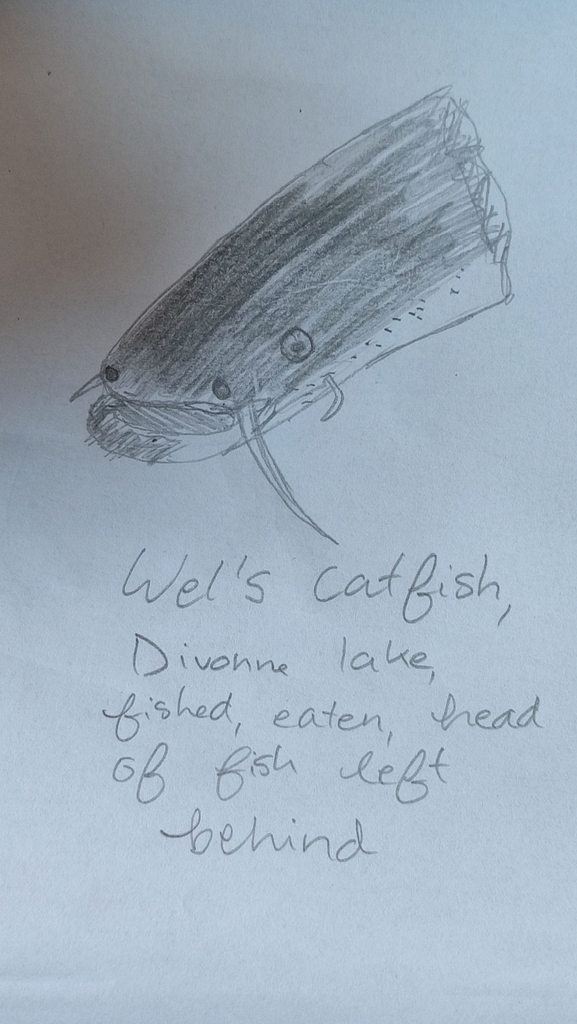 Wel's Catfish,
Divonne lake,
fished, eaten, head
of fish left
behind